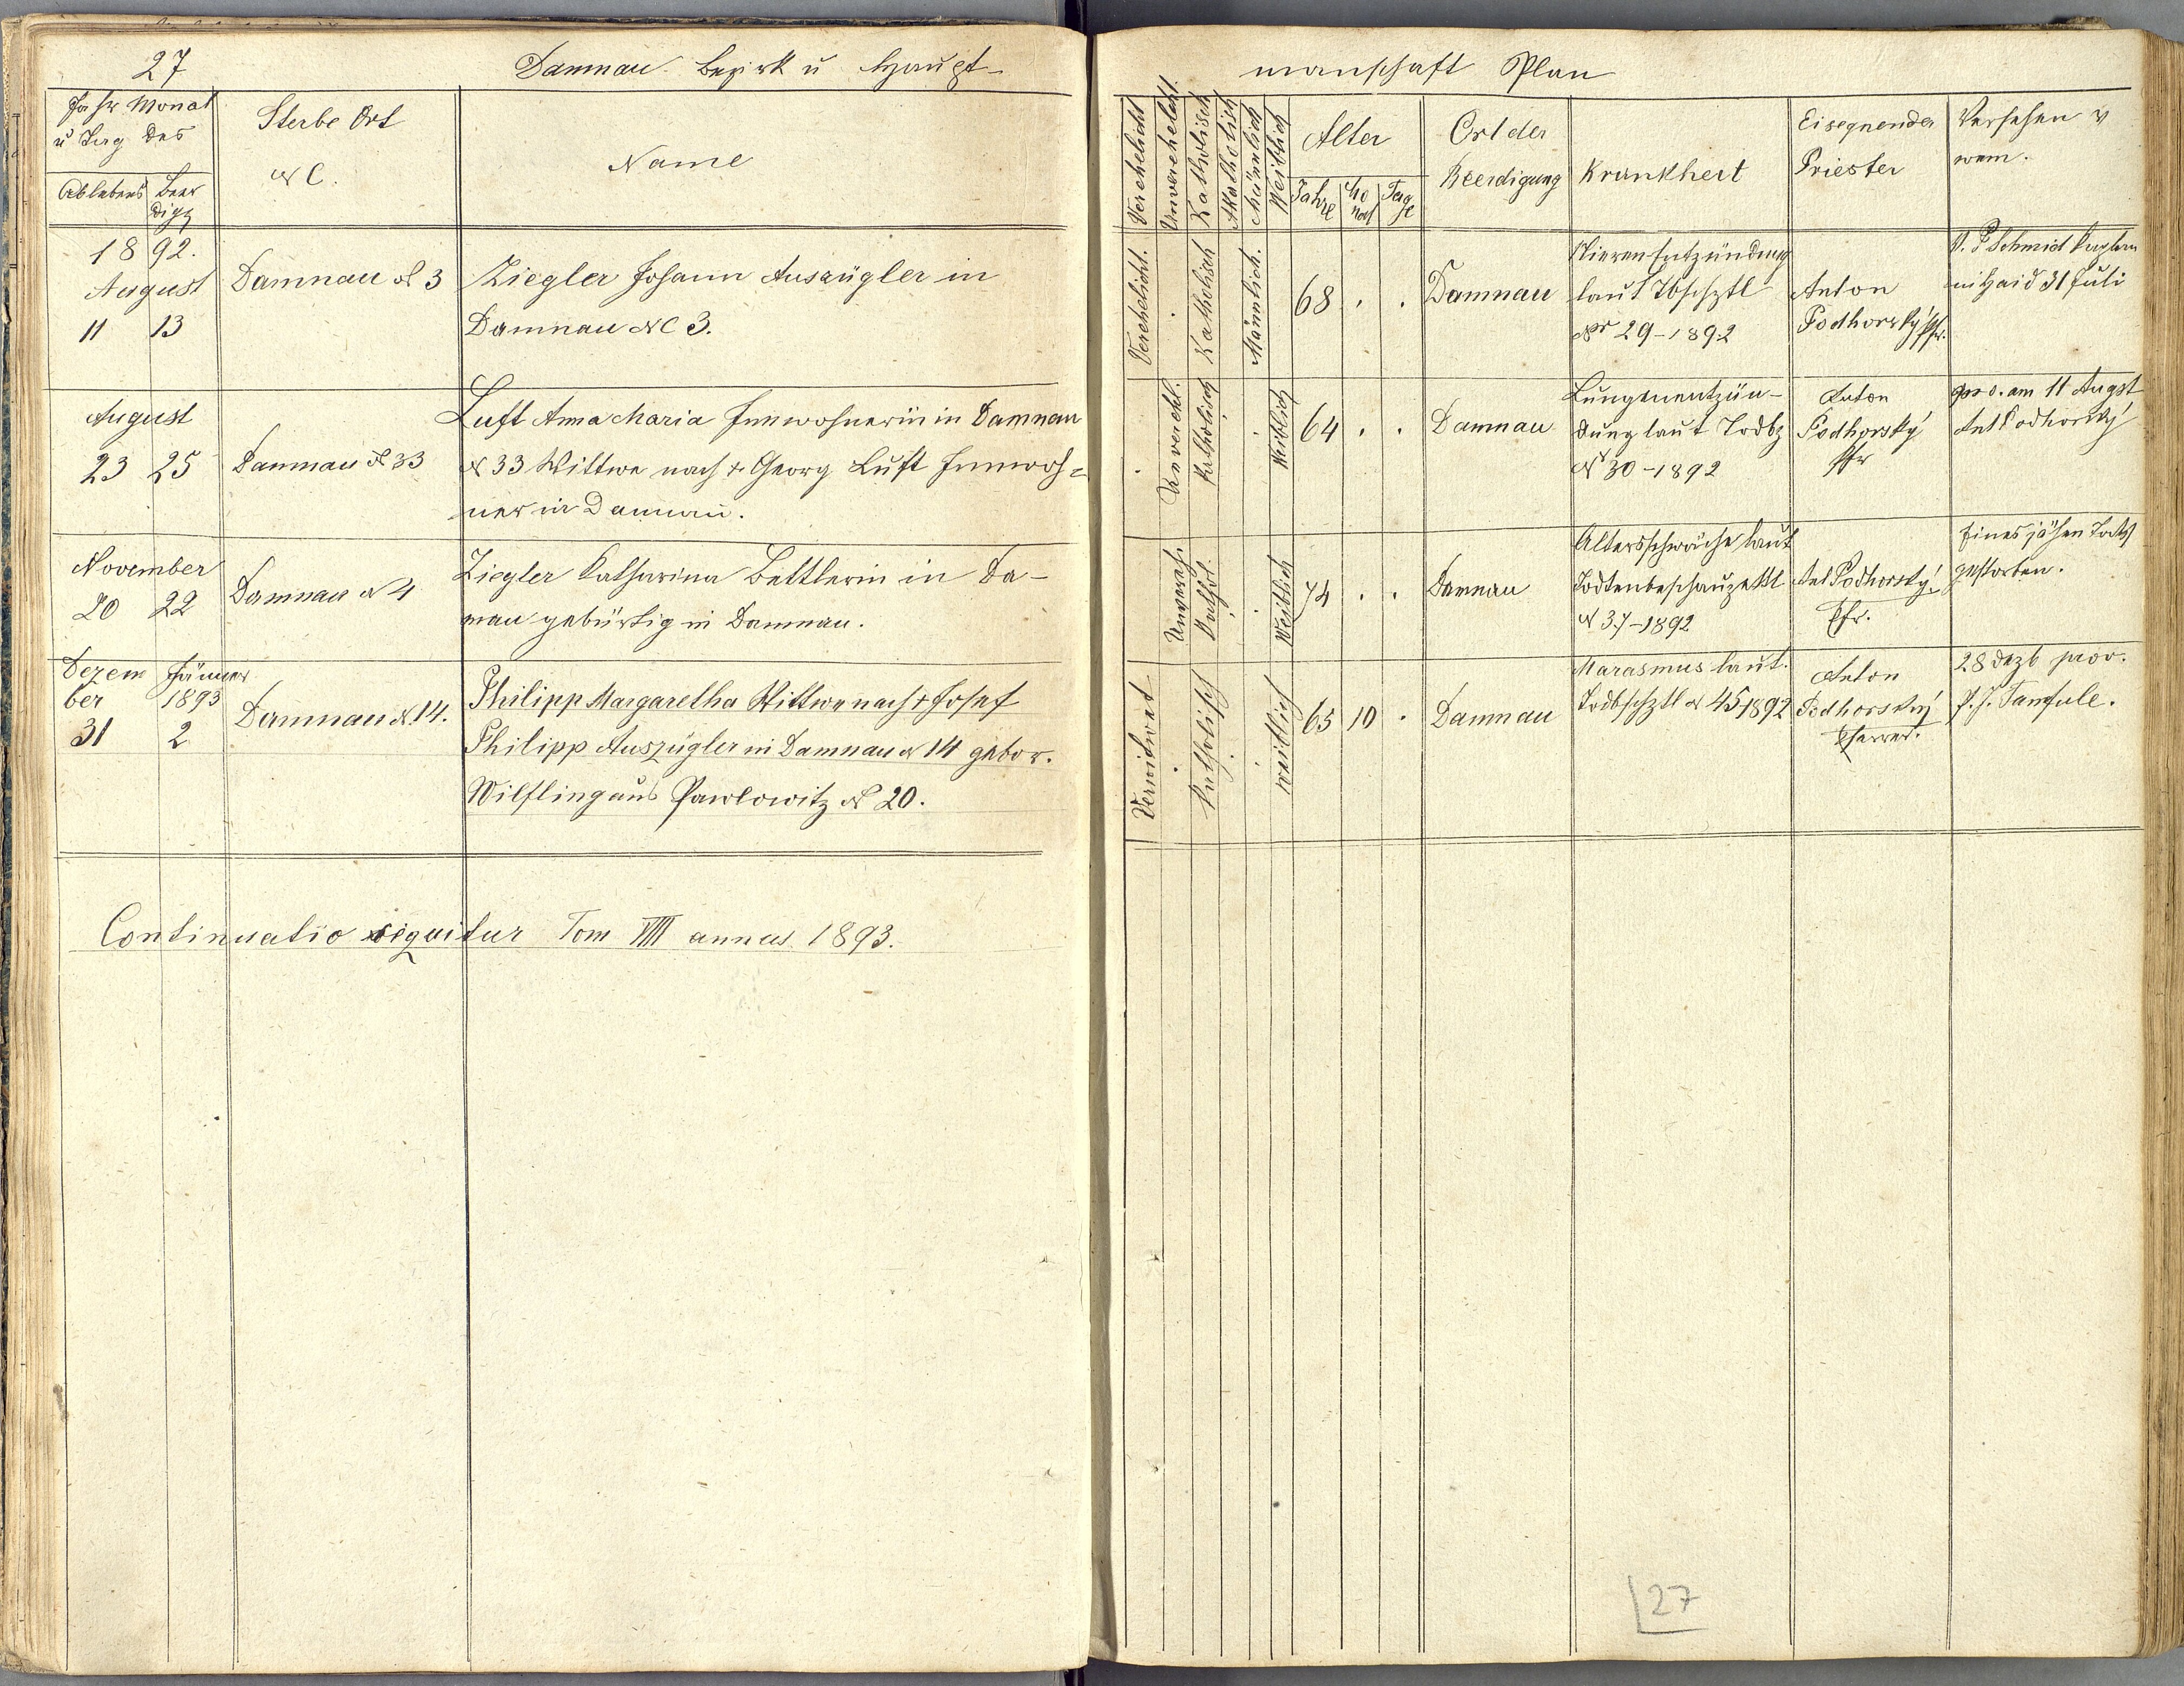 27
Damnau Bezirk u Haupt-
manschaft Plan
Jahr Monat
u Tag des
Ablebens Beer
digg
Sterbe Ort
N C.
Name
Verehelicht
Unverehelicht
Katholisch
Akatholisch
Männlich
Weiblich
Alter
Jahre Mo
nat Tag
e
Ort der
Beerdigung
Krankheit
Eisegnender
Priester
Versehen v
wem.
1892.
August
11 13
Damnau N 3
Ziegler Johann Auszügler in
Damnau NC 3.
Verehelicht.
Katholisch
Männlich.
68 . .
Damnau
Nieren Entzündung
laut Tbschztl
Nr 29-1892
Anton
Podhorský Pfr.
V. P Schmid
in Haid 31 Juli
August
23 25
Damnau N 33
Luft Anna Maria Innwohnerin in Damnau
N 33 Wittwe nach + Georg Luft Innwoh=
ner in Damnau.
Unverehl.
Katholisch
Weiblich
64 . .
Damnau
Lungenentzün-
dung laut Todbz
N 30-1892
Anton
Podhorský
Pfr
pro. am 11 Augst
Ant Podhorský
November
20 22
Damnau N 4
Ziegler Katharina Bettlerin in Da-
mnau gebürtig in Damnau.
Unvereh.
Kathol.
Weiblich
74 . .
Damnau
Altersschwäche laut
Todtenbeschauzettl
N 37-1892
Ant Podhorský
Pfr.
Eines jähen Tods
gestorben.
Dezem Jänner
ber 1893
31 2
Damnau N 14.
Philipp Margaretha Wittwe nach + Josef
Philipp Auszügler in Damnau N 14 gebor.
Wilfling aus Pawlowitz N 20.
Verwitwet
Katholisch
weiblich
65 10 .
Damnau
Marasmus laut.
Todbschztl N 45 1892
Anton
Podhorský
Pfarrer.
28 Dezb prov.
Continuatio sequitur Tom VIII annus 1893.
27